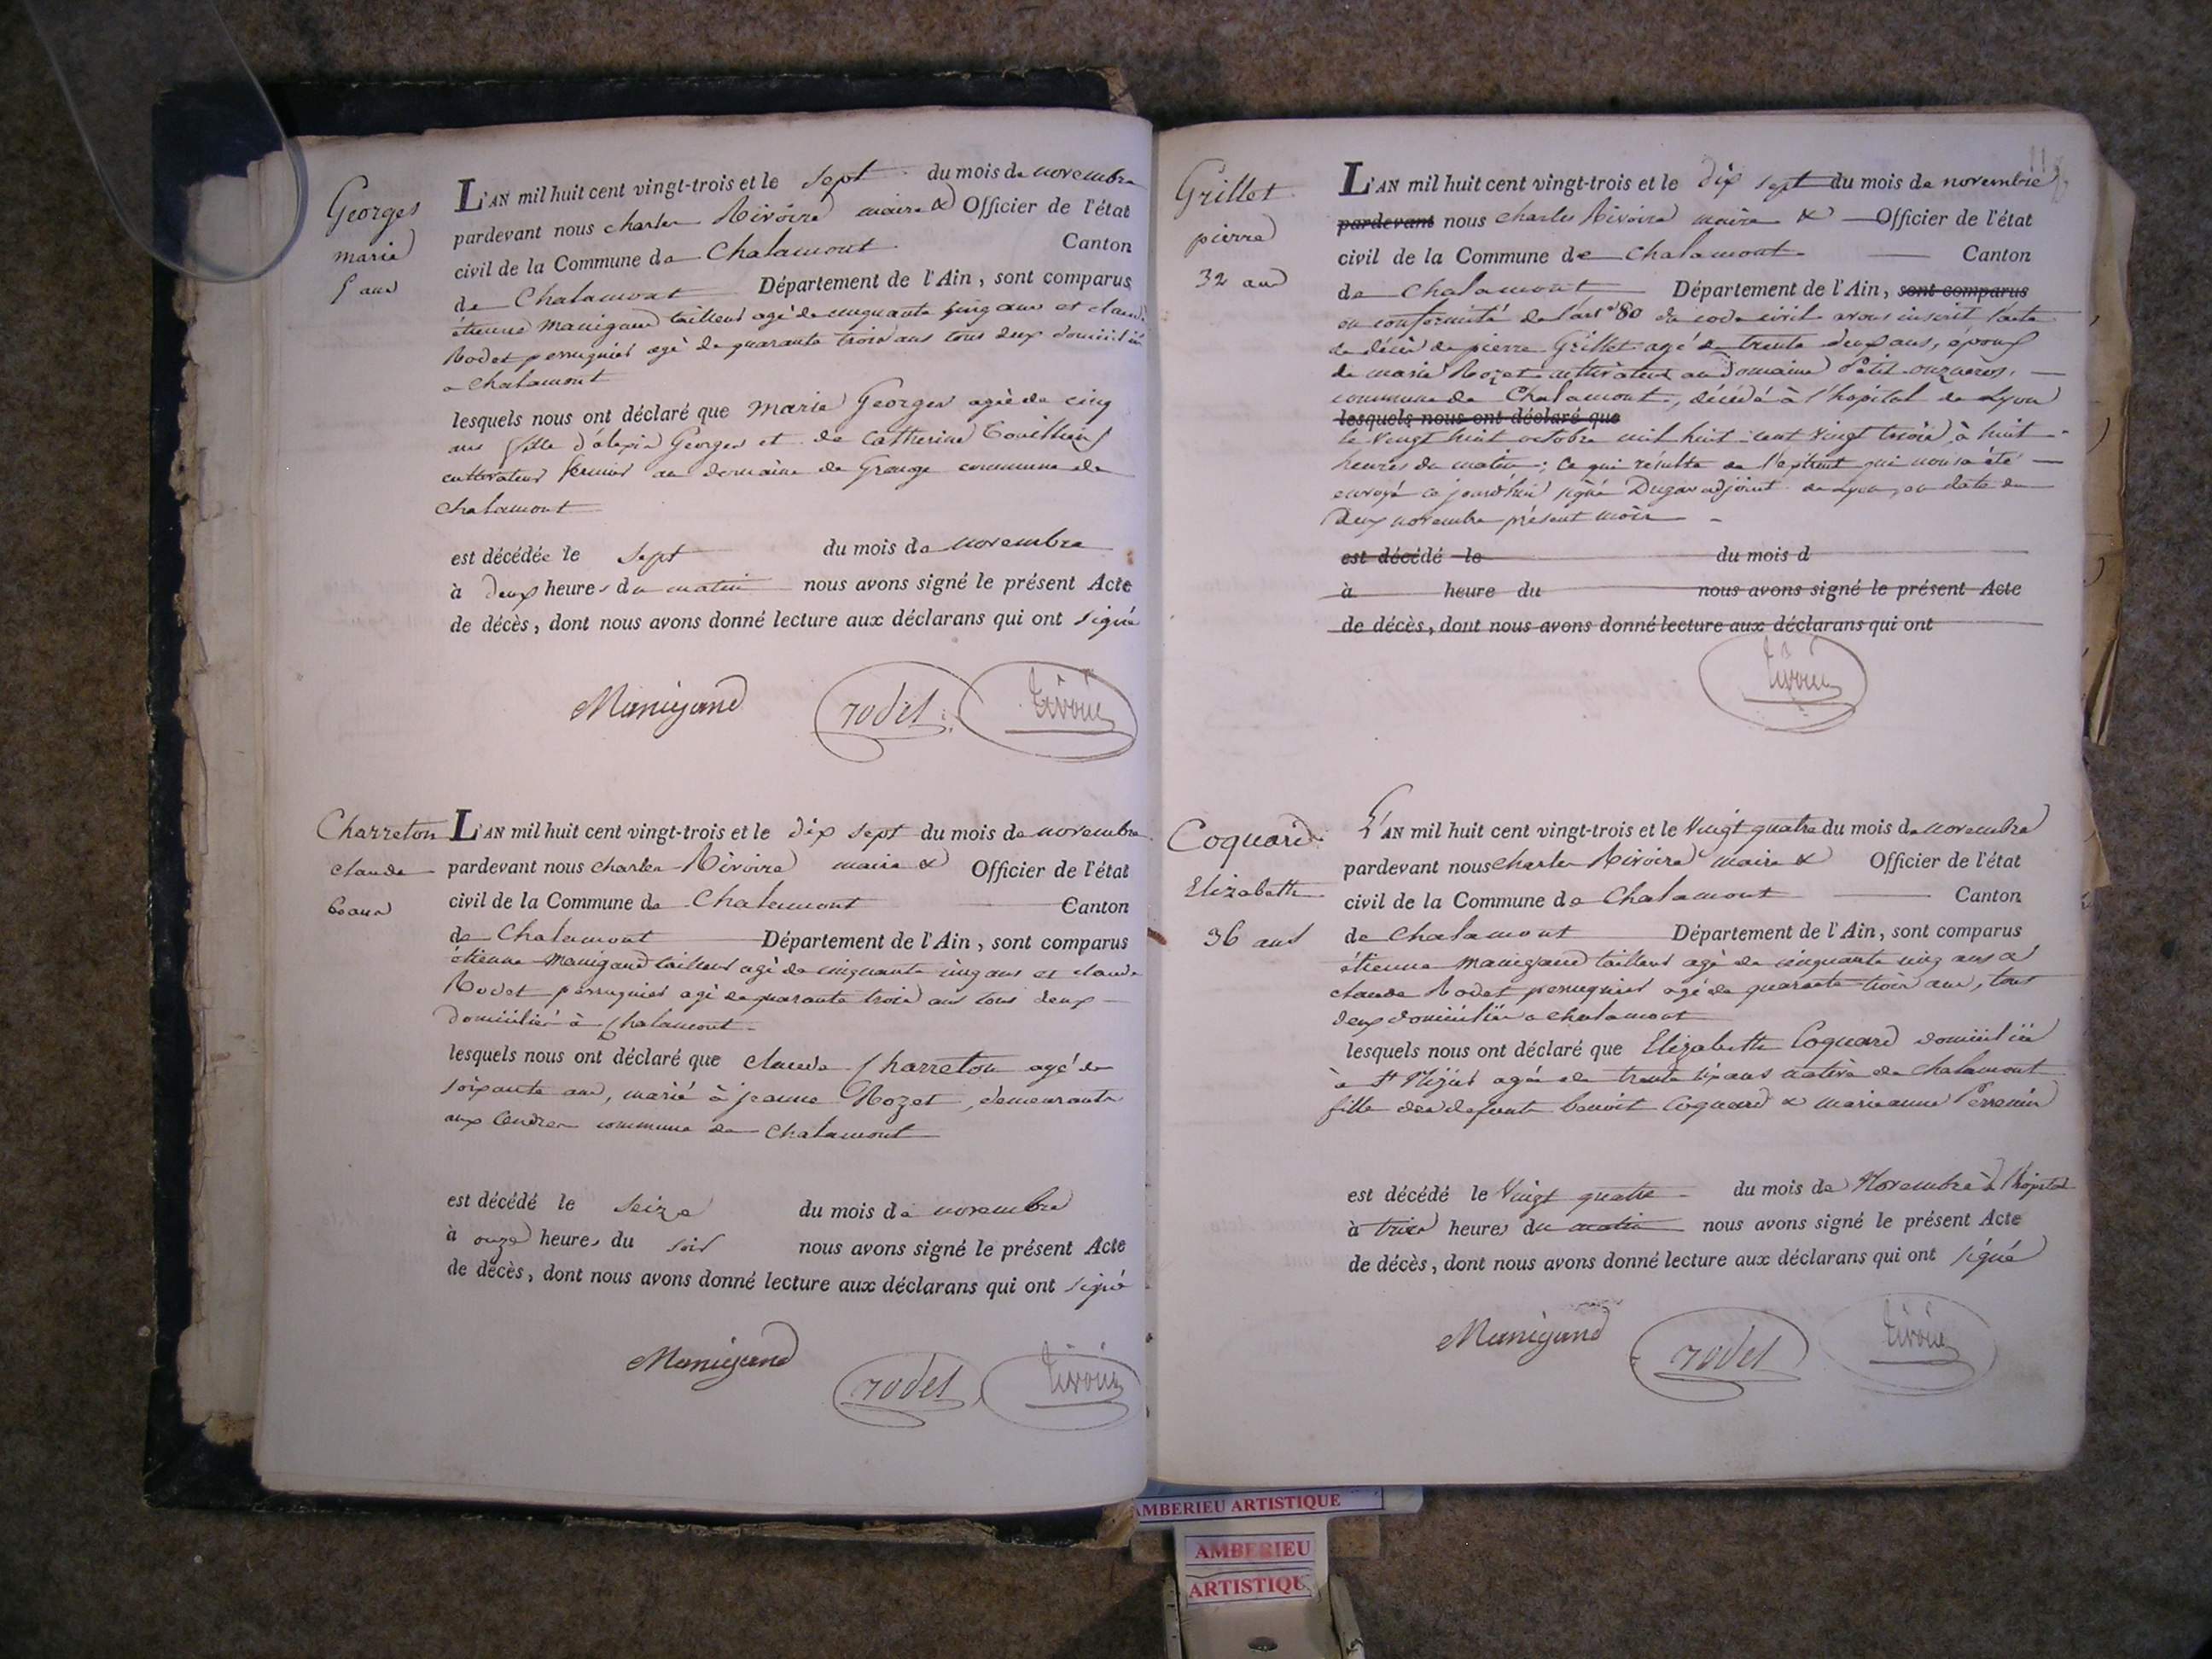 Georges
marie
5 ans
L'AN mil huit cent vingt-trois et le sept du mois de novembre
pardevant nous charles Rivoire maire & Officier de l'état
civil de la Commune de Chalamont Canton
de Chalamont Département de l'Ain, sont comparus
étienne Manigand tailleur agé de cinquante cinq ans et claude
Rodet perruquier agé de quarante trois ans tous deux domiciliés
a chalamont
lesquels nous ont déclaré que marie Georges agée de cinq
ans fille d'alexis Georges et de Catherine
cultivateur fermier au domaine de Grange commune de
chalamont
est décédée le sept du mois de novembre
à deux heures du matin nous avons signé le présent Acte
de décès, dont nous avons donné lecture aux déclarans qui ont signé
Manigand rodet rivoire
Charreton
claude
60 ans
L'AN mil huit cent vingt-trois et le dix sept du mois de novembre
pardevant nous charles Rivoire maire & Officier de l'état
civil de la Commune de Chalamont Canton
de Chalamont Département de l'Ain, sont comparus
étienne Manigand tailleur agé de cinquante cinq ans et claude
Rodet perruquier agé de quarante trois ans tous deux
domiciliés à Chalamont
lesquels nous ont déclaré que claude Charreton agé de
soixante ans, marié à jeanne Rozet, demeurante
aux Cendres commune de chalamont
est décédé le seize du mois de novembre
à onze heures du soir nous avons signé le présent Acte
de décès, dont nous avons donné lecture aux déclarans qui ont signé
Manigand rodet rivoire
Grillet
pierre
32 ans
L'AN mil huit cent vingt-trois et le dix sept du mois de novembre
pardevant nous charles Rivoire maire & Officier de l'état
civil de la Commune de chalamont Canton
de chalamont Département de l'Ain, sont comparus
en conformité de l'art 80 du code civil avons inscrit l'acte
de décès de pierre Grillet agé de trente deux ans, époux
de marie Rozet cultivateur au domaine Petit
commune de Chalamont, décédé à l'hopital de Lyon
lesquels nous ont déclaré que
le vingt huit octobre mil huit cent vingt trois à huit
heures du matin; ce qui résulte de l'extrait qui nous a été
envoyé ce jourd'hui signé Dugas adjoint de Lyon, en date du
deux novembre présent mois
est décédé le du mois d
à heure du nous avons signé le présent Acte
de décès, dont nous avons donné lecture aux déclarans qui ont
rivoire
Coquard
Elizabeth
36 ans
L'AN mil huit cent vingt-trois et le Vingt quatre du mois de novembre
pardevant nous charles Rivoire maire & Officier de l'état
civil de la Commune de Chalamont Canton
de Chalamont Département de l'Ain, sont comparus
étienne Manigand tailleur agé de cinquante cinq ans &
claude Rodet perruquier agé de quarante trois ans, tous
deux domiciliés a chalamont
lesquels nous ont déclaré que Elizabeth Coquard domiciliée
à St Nizier agée de trente six ans native de chalamont
fille des defunts benoit Coquard & marieanne
est décédé le Vingt quatre du mois de Novembre à l'hopital
à trois heures du matin nous avons signé le présent Acte
de décès, dont nous avons donné lecture aux déclarans qui ont signé
Manigand rodet rivoire
AMBERIEU ARTISTIQUE
AMBERIEU
ARTISTIQUE